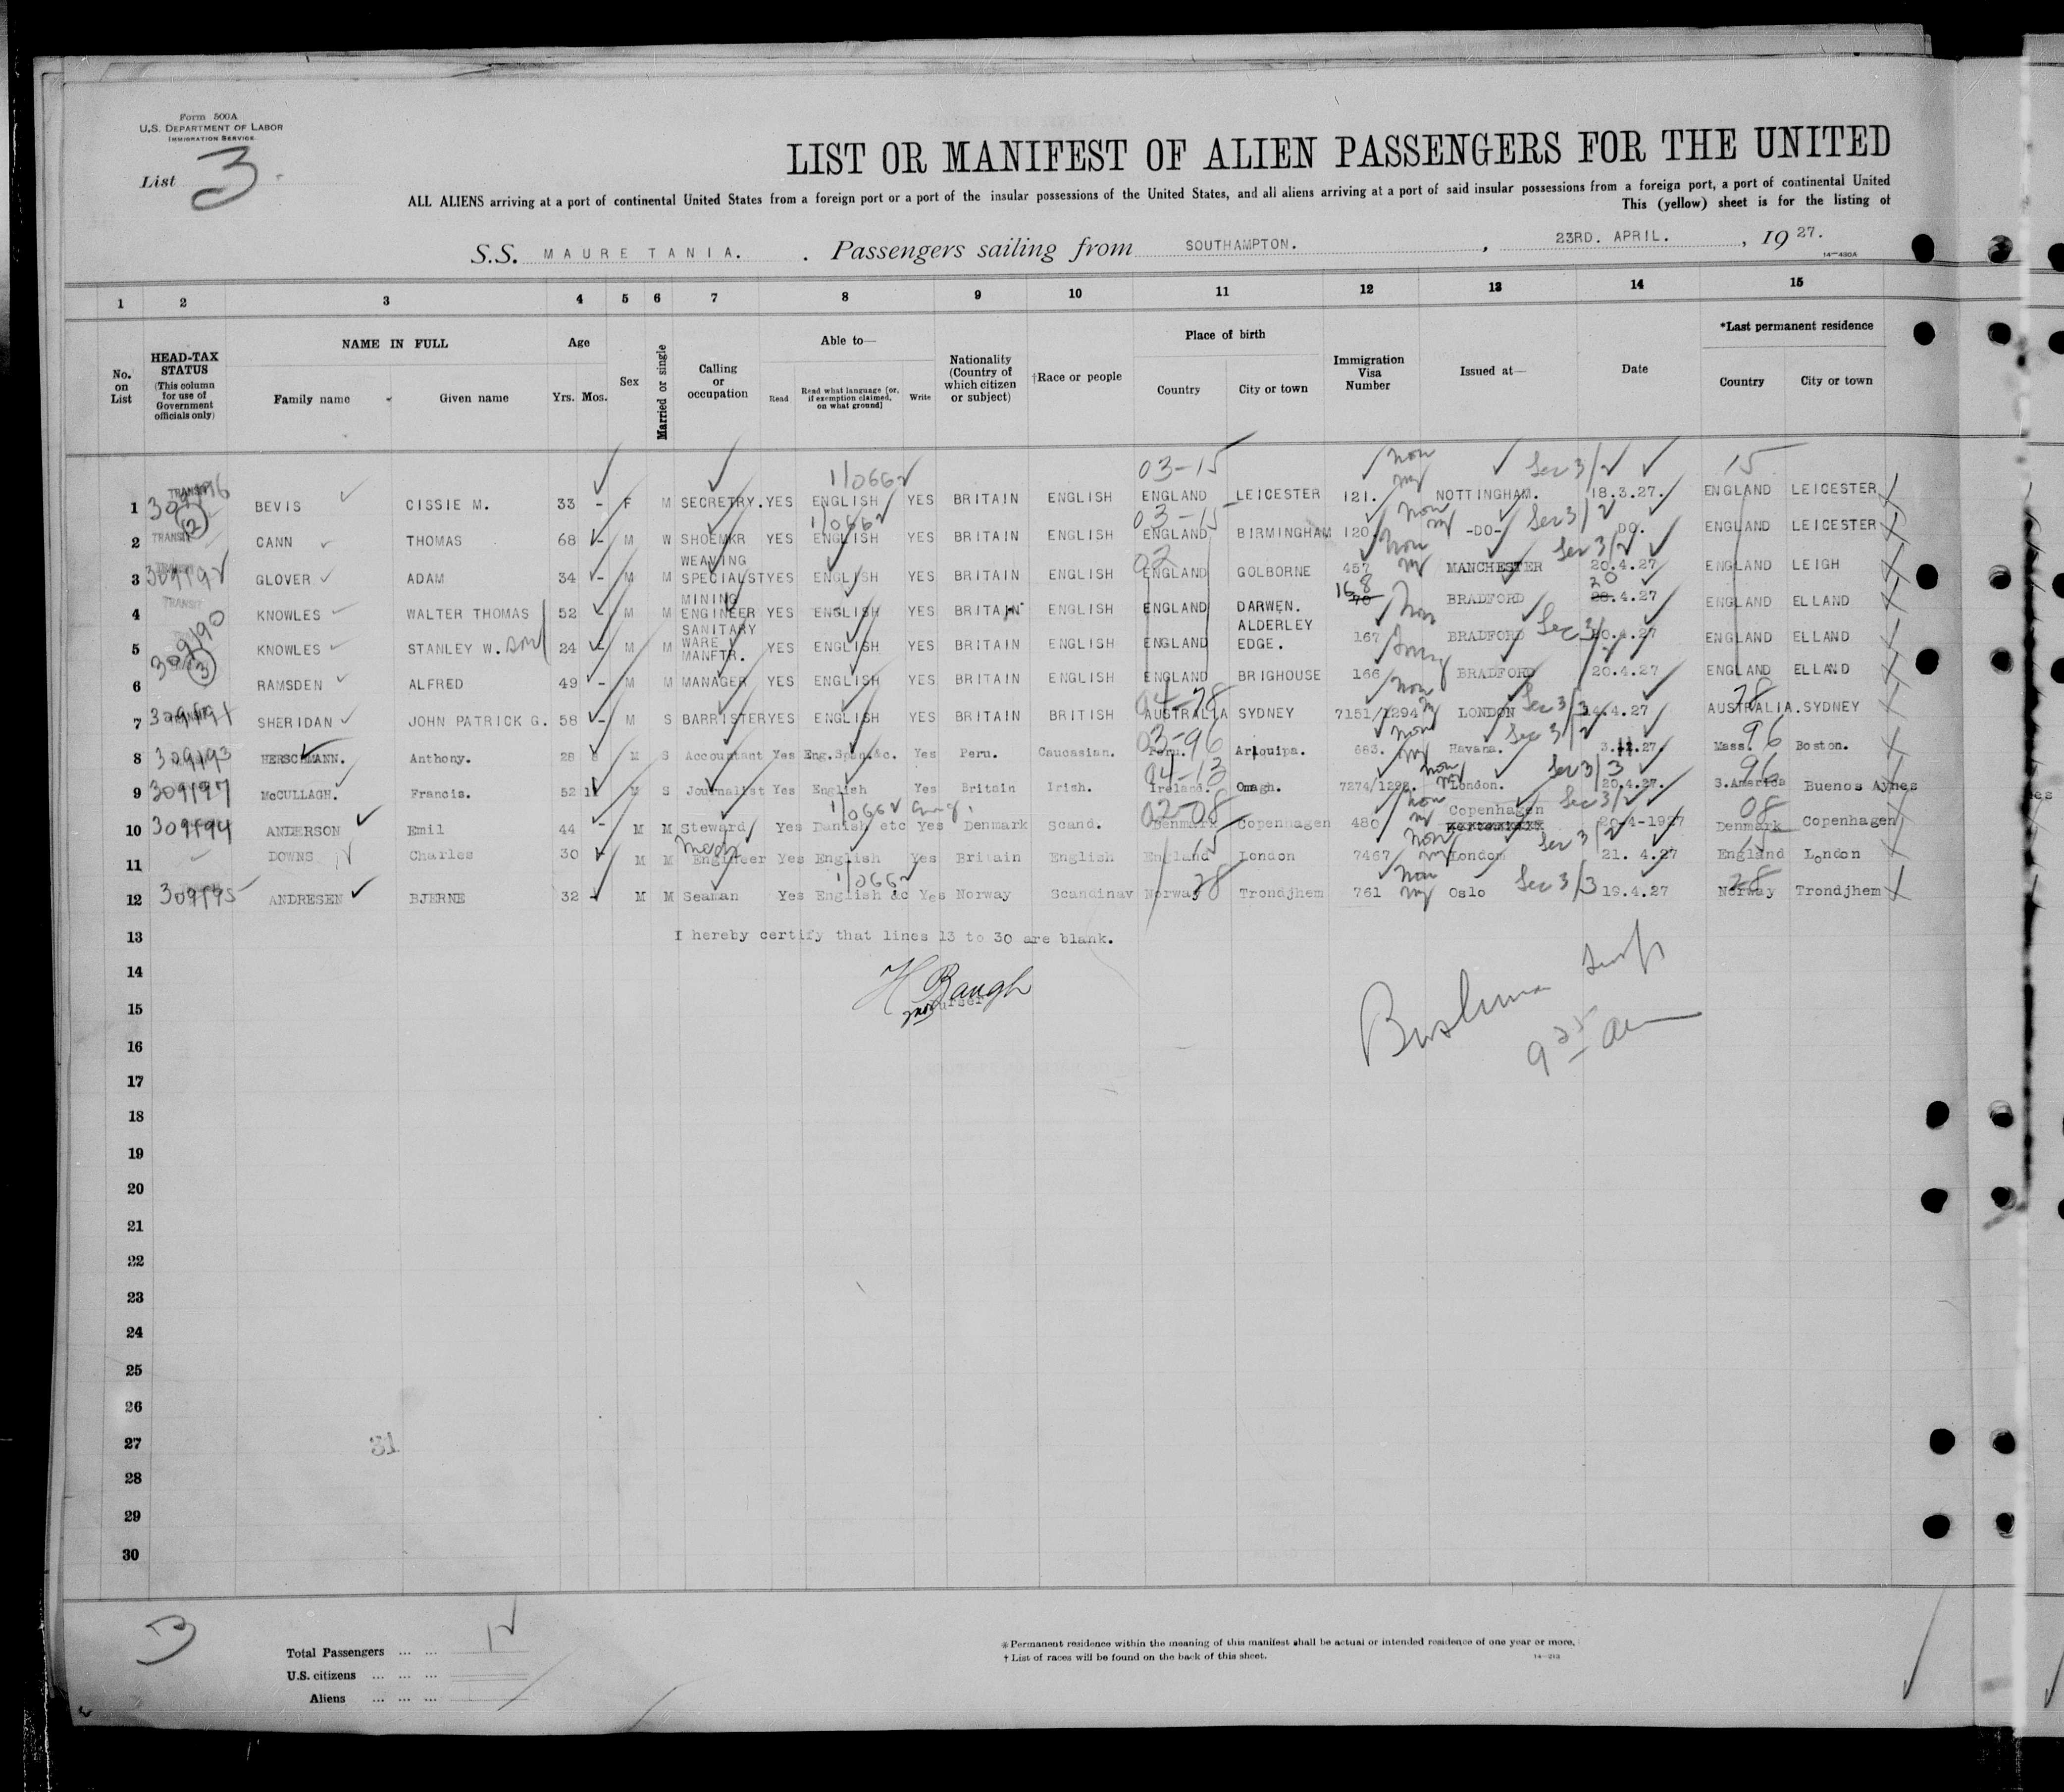 Form 500A
U.S. DEPARTMENT OF LABOR
IMMIGRATION SERVICE
List 3.
LIST OR MANIFEST OF ALIEN PASSENGERS FOR THE UNITED
ALL ALIENS arriving at a port of continental United States from a foreign port or a port of the insular possessions of the United States, and all aliens arriving at a port of said insular possessions from a foreign port, a port of continental United
This (yellow) sheet is for the listing of
S.S. MAURETANIA. Passengers sailing from SOUTHAMPTON. , 23RD. APRIL. , 1927.
14—430A
1 2 3 4 5 6 7 8 9 10 11 12 13 14 15
No. on List
HEAD-TAX STATUS (This column for use of Government officials only)
NAME IN FULL
Family name Given name
Age
Yrs. Mos.
Sex
Married or single
Calling or occupation
Able to—
Read Read what language [or, if exemption claimed, on what ground] Write
Nationality (Country of which citizen or subject)
†Race or people
Place of birth
Country City or town
Immigration Visa Number
Issued at—
Date
*Last permanent residence
Country City or town
1/066 03-15 non Sec 3/2 15
1 TRANSIT 309196 BEVIS CISSIE M. 33 - F M SECRETRY. YES ENGLISH YES BRITAIN ENGLISH ENGLAND LEICESTER 121. NOTTINGHAM. 18.3.27. ENGLAND LEICESTER
(2) 1/066 03-15 non Sec 3/2
2 TRANSIT CANN THOMAS 68 - M W SHOEMKR YES ENGLISH YES BRITAIN ENGLISH ENGLAND BIRMINGHAM 120. -DO- DO. ENGLAND LEICESTER
02 non Sec 3/2
3 309192 GLOVER ADAM 34 - M M WEAVING SPECIALST YES ENGLISH YES BRITAIN ENGLISH ENGLAND GOLBORNE 457 MANCHESTER 20.4.27 ENGLAND LEIGH
4 TRANSIT KNOWLES WALTER THOMAS 52 - M M MINING ENGINEER YES ENGLISH YES BRITAIN ENGLISH ENGLAND DARWEN. 168 BRADFORD 20.4.27 ENGLAND ELLAND
5 309190 KNOWLES STANLEY W. 24 - M M SANITARY WARE MANFTR. YES ENGLISH YES BRITAIN ENGLISH ENGLAND ALDERLEY EDGE. 167 BRADFORD Sec 3/2 20.4.27 ENGLAND ELLAND
6 (3) RAMSDEN ALFRED 49 - M M MANAGER YES ENGLISH YES BRITAIN ENGLISH ENGLAND BRIGHOUSE 166 BRADFORD 20.4.27 ENGLAND ELLAND
04-78 non Sec 3/2 78
7 309191 SHERIDAN JOHN PATRICK G. 58 - M S BARRISTER YES ENGLISH YES BRITAIN BRITISH AUSTRALIA SYDNEY 7151/1294 LONDON 14.4.27 AUSTRALIA. SYDNEY
03-96 non Sec 3/2 96
8 309193 HERSCHMANN. Anthony. 28 8 M S Accountant Yes Eng.Span.&c. Yes Peru. Caucasian. Peru. Arequipa. 683. Havana. 27. Mass. Boston.
04-13 non Sec 3/3 96
9 309197 McCULLAGH. Francis. 52 11 M S Journalist Yes English Yes Britain Irish. Ireland. Omagh. 7274/1298. London. 20.4.27. S.America Buenos Ayres
1/066 Eng. 02-08 non Sec 3/2 08
10 309194 ANDERSON Emil 44 - M M Steward Yes Danish etc Yes Denmark Scand. Denmark Copenhagen 480 Copenhagen 20-4-1927 Denmark Copenhagen
Mech 15 non Sec 3/2 15
11 DOWNS Charles 30 - M M Engineer Yes English Yes Britain English England London 7467 London 21. 4.27 England London
1/066 28 non Sec 3/3 28
12 309195 ANDRESEN BJERNE 32 - M M Seaman Yes English &c Yes Norway Scandinav Norway Trondjhem 761 Oslo 19.4.27 Norway Trondjhem
13 I hereby certify that lines 13 to 30 are blank.
14
H Baugh
15 Purser
16
17
18
19
20
21
22
23
24
25
26
27
28
29
30
3
Total Passengers ... ... 12
U.S. citizens ... ... ...
Aliens ... ... ...
*Permanent residence within the meaning of this manifest shall be actual or intended residence of one year or more.
†List of races will be found on the back of this sheet.
14—213